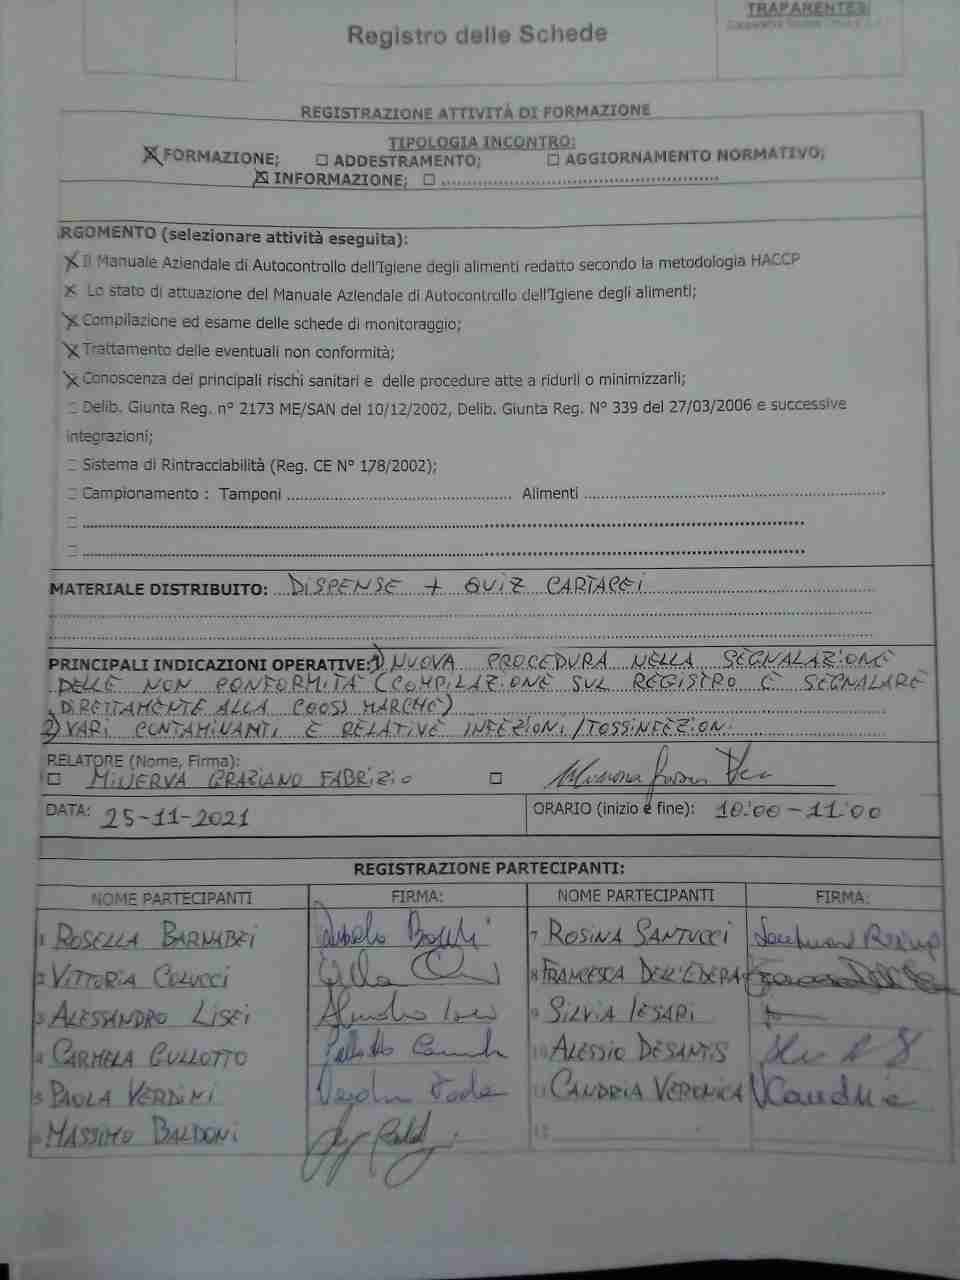 Registro delle Schede
TRAPARENTESI
REGISTRAZIONE ATTIVITÀ DI FORMAZIONE
TIPOLOGIA INCONTRO:
☒ FORMAZIONE; ☐ ADDESTRAMENTO; ☐ AGGIORNAMENTO NORMATIVO;
☒ INFORMAZIONE; ☐ ..........
RGOMENTO (selezionare attività eseguita):
☒ Il Manuale Aziendale di Autocontrollo dell'Igiene degli alimenti redatto secondo la metodologia HACCP
☒ Lo stato di attuazione del Manuale Aziendale di Autocontrollo dell'Igiene degli alimenti;
☒ Compilazione ed esame delle schede di monitoraggio;
☒ Trattamento delle eventuali non conformità;
☒ Conoscenza dei principali rischi sanitari e delle procedure atte a ridurli o minimizzarli;
☐ Delib. Giunta Reg. n° 2173 ME/SAN del 10/12/2002, Delib. Giunta Reg. N° 339 del 27/03/2006 e successive
integrazioni;
☐ Sistema di Rintracciabilità (Reg. CE N° 178/2002);
☐ Campionamento : Tamponi .......... Alimenti ..........
☐ ..........
☐ ..........
MATERIALE DISTRIBUITO: DISPENSE + QUIZ CARTACEI
PRINCIPALI INDICAZIONI OPERATIVE: 1) NUOVA PROCEDURA NELLA SEGNALAZIONE
DELLE NON CONFORMITÀ (COMPILAZIONE SUL REGISTRO E SEGNALARE
DIRETTAMENTE ALLA COOSS MARCHE)
2) VARI CONTAMINANTI E RELATIVE INFEZIONI/TOSSINFEZIONI
RELATORE (Nome, Firma):
☐ MINERVA GRAZIANO FABRIZIO ☐
DATA: 25-11-2021 ORARIO (inizio e fine): 10:00-11:00
REGISTRAZIONE PARTECIPANTI:
NOME PARTECIPANTI FIRMA: NOME PARTECIPANTI FIRMA:
1 ROSELLA BARNABEI 7 ROSINA SANTUCCI
2 VITTORIA COLUCCI 8 FRANCESCA DELL'EDERA
3 ALESSANDRO LISEI 9 SILVIA IESARI
4 CARMELA GULLOTTO 10 ALESSIO DESANTIS
5 PAOLA VERDINI 11 CANDRIA VERONICA VCandria
6 MASSIMO BALDONI 12